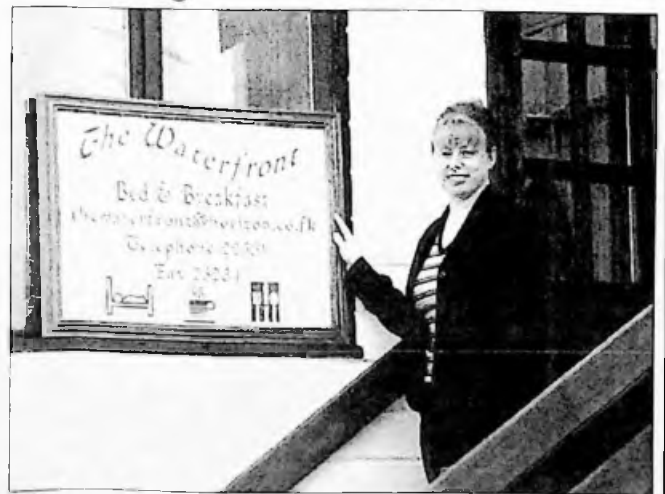 The Waterfront
Bed & Breakfast
thewaterfront@horizon.co.fk
Telephone
Fax